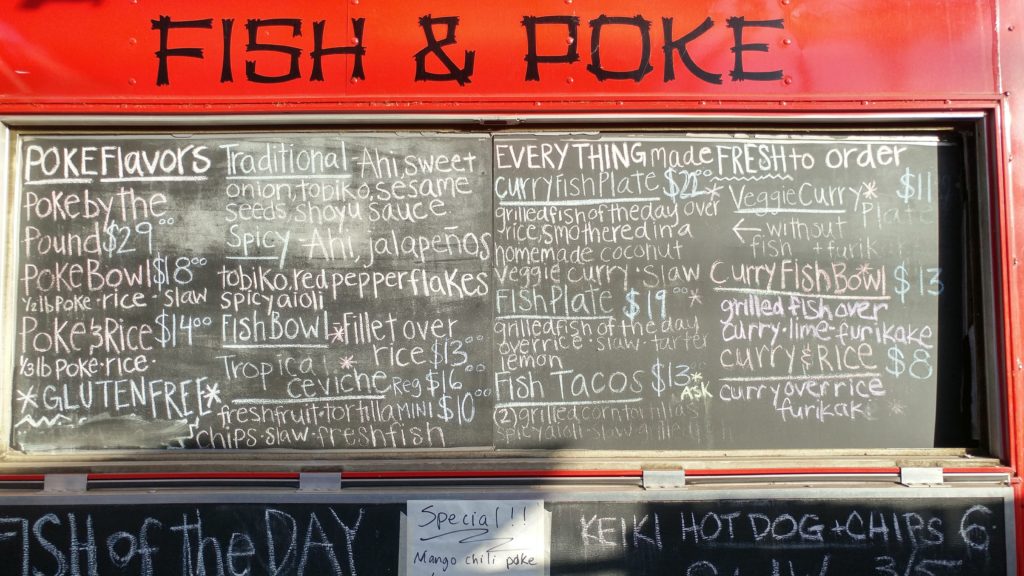 FISH & POKE
POKE Flavors
Poke by the
Pound $29.00
Poke Bowl $18.00
1/2 lb Poke · rice · slaw
Poke & Rice $14.00
1/3 lb Poke · rice ·
*GLUTEN FREE*
Traditional - Ahi, sweet
onion, topiko, sesame
seeds, shoyu sauce
Spicy - Ahi, jalapeños
tobiko, red pepper flakes
spicy aioli
Fish Bowl *fillet over
rice $13.00
Tropical *
ceviche Reg $16.00
fresh fruit · tortilla MINI $10.00
chips · slaw · fresh fish
EVERYTHING made FRESH to order
Curry Fish Plate $22 *
grilled fish of the day over
rice, smothered in a
homemade coconut
veggie curry · slaw
Fish Plate $19.00 *
grilled fish of the day
over rice · slaw · tarter
lemon
Fish Tacos $13 *
Ask
(2) grilled corn tortillas
spicy aioli · slaw · grilled
Veggie Curry * $11
Plate
← without
fish + furik
Curry Fish Bowl * $13
grilled fish over
curry · lime · furikake
curry & RICE $8
curry over rice
furikake *
FISH of the DAY
Special!!
Mango chili poke
KEIKI HOT DOG + CHIPS 6.
3/5